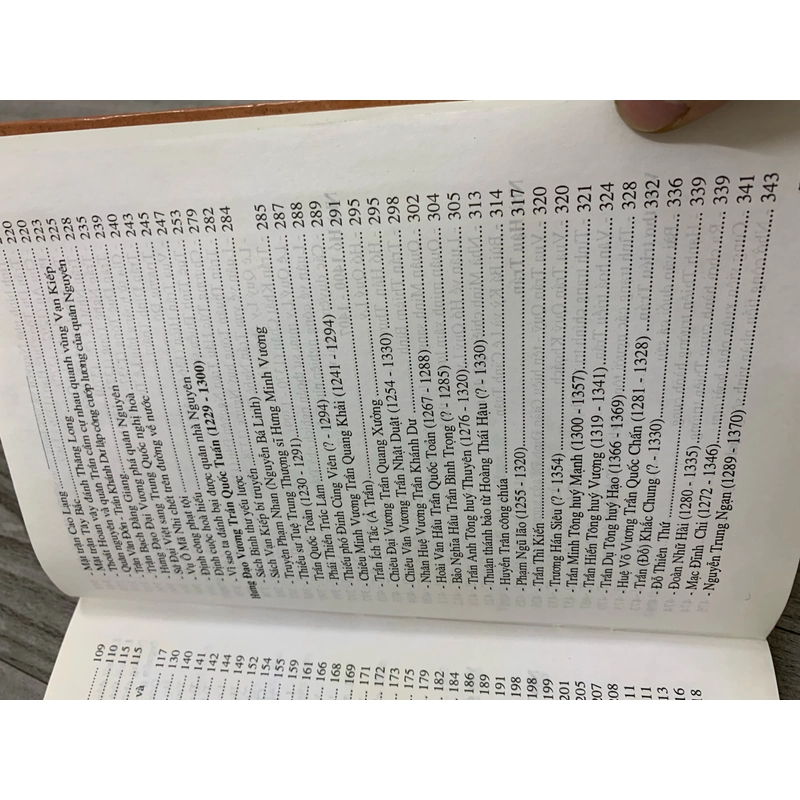 - Mặt trận Cao Lạng
- Mặt trận Tây Bắc
- Mặt trận vây đánh Thăng Long
- Thoát Hoan và quân Trần cầm cự nhau quanh vùng Vạn Kiếp
Quân Vân Đồn - Trần Khánh Dư lập công cướp lương của quân Nguyên
- Trận Bạch Đằng Giang phá quân Nguyên
- Hưng Đạo Đại Vương Trần Quốc nghi hoà
- Sứ Đại Việt sang Trung Quốc
- Ô Mã Nhi chết trên đường về nước
- Vụ công phạt tội
- Định công hoà hiếu
- Vì sao ta đánh bại được quân nhà Nguyên
Hưng Đạo Vương Trần Quốc Tuấn (1229 - 1300)
- Sách Binh thư yếu lược
- Sách Vạn Kiếp bí truyền
- Truyện Phạm Nhan (Nguyễn Bá Linh)
- Thiếu sư Tuệ Trung Thượng sĩ Hưng Minh Vương
Trần Quốc Toản (1230 - 1291)
- Phái Thiền Trúc Lâm
- Thiếu phó Đinh Củng Viên (? - 1294)
- Chiêu Minh Vương Trần Quang Khải (1241 - 1294)
- Trần Ích Tắc (Ả Trần)
- Chiêu Đại Vương Trần Quang Xưởng
- Chiêu Văn Vương Trần Nhật Duật (1254 - 1330)
- Nhân Huệ Vương Trần Khánh Dư
- Hoài Văn Hầu Trần Quốc Toản (1267 - 1288)
- Bảo Nghĩa Hầu Trần Bình Trọng (? - 1285)
- Trần Anh Tông huý Thuyên (1276 - 1320)
- Thuận thánh bảo từ Hoàng Thái Hậu (? - 1330)
- Huyền Trân công chúa
- Phạm Ngũ lão (1255 - 1320)
- Trần Thì Kiến
- Trương Hán Siêu (? - 1354)
- Trần Minh Tông huý Mạnh (1300 - 1357)
- Trần Hiến Tông huý Vượng (1319 - 1341)
- Trần Dụ Tông huý Hạo (1366 - 1369)
- Huệ Võ Vương Trần Quốc Chẩn (1281 - 1328)
- Trần (Đỗ) Khắc Chung (? - 1330)
- Đỗ Thiên Thứ
- Đoàn Nhữ Hài (1280 - 1335)
- Mạc Đĩnh Chi (1272 - 1346)
- Nguyễn Trung Ngạn (1289 - 1370)
220
220
223
225
228
235
239
240
243
245
247
253
279
282
284
285
287
288
289
291
295
295
298
302
304
305
313
314
317
320
320
321
324
328
332
336
339
339
341
343
109
110
115
và 115
117
130
140
141
142
144
149
152
154
155
159
161
166
168
169
171
172
173
175
179
182
184
186
189
191
198
198
199
201
205
207
208
11
11
13
16
18